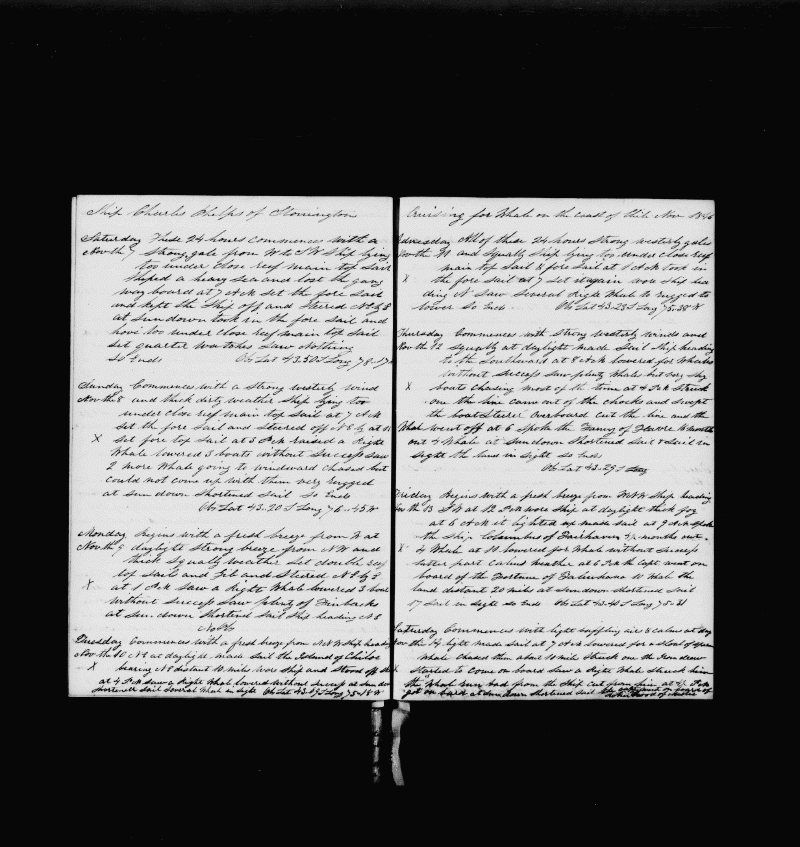 Ship Charles Phelps of Stonington
Saturday These 24 hours Commences with a
Nov the 7 Strong gale from W to SW Ship lying
too under close reef main top sail
shiped a heavy sea and lost the gang
way board at 7 AM set the fore sail
and kept the Ship off and Steered
at Sundown took in the fore sail and
hove too under close reef main top sail
set quarter watches Saw Nothing
So Ends Ob Lat 43.50 S Long 78.17
Sunday Commences with a Strong westerly wind
Nov the 8 and thick dirty weather Ship lying too
under close reef main top sail at 7 AM
set the fore sail and steered off
X set fore top sail at 3 PM raised a Right
Whale lowered 3 boats without success saw
2 more Whale going to windward chased but
could not come up with them very rugged
at Sundown Shortened Sail So Ends
Ob Lat 43..20 S Long 76..45 W
Monday Begins with a fresh breeze from W at
Nov the 9 daylight Strong breeze from NW and
thick Squally weather Set double reef
top sails and Jib and Steered
X at 1 PM Saw a Right Whale lowered 3 boats
without success Saw plenty of Finbacks
at Sundown Shorted Sail Ship heading
No Ob
Tuesday Commences with a fresh breeze from Ship heading
Nov the 10 at daylight made Sail the Island of Chiloe
X bearing distant wore Ship and Stood off
at 4 PM Saw a Right Whale lowered without success at Sundown
Shortened Sail Several Whale in sight Ob Lat 43.09 S Long 75..18 W
Cruising for Whale on the coast of Chile Nov 1846
Wednesday All of these 24 hours Strong westerly gales
Nov the 11 and Squally Ship lying too under close reef
main top Sail & fore Sail at 1 AM took in
X the fore Sail at 7 set it again wore Ship hea
ding N Saw Several Right Whale to rugged to
lower So Ends Ob Lat 43.23 S Long 75..38 W
Thursday Commences with Strong westerly winds and
Nov the 12 Squally at daylight made Sail Ship heading
to the Southward at 8 AM lowered for Whales
without success Saw plenty Whale but very shy
X boats chasing most of the time at 4 PM Struck
one the line cam out of the chocks and swept
the boatsteerer overboard cut the line and the
Whale went off at 6 spoke the Fanny of Havre 16 months
out 4 Whale at Sundown Shortened Sail
Sight the land in sight So Ends
Ob Lat 43..29 S Long
Friday Begins with a fresh breeze from Ship heading
Nov the 13 at 12 PM wore Ship at daylight thick fog
at 6 AM it lighted up made sail at 9 AM spok
the Ship Columbus of Fairhaven months out
X Whale at 10 lowered for Whale without success
latter part calms weather at 6 PM the Capt went on
board of the Fortune of 10 Whale the
land distant 20 miles at Sundown Shortened Sail
17 Sail in Sight So Ends Ob Lat 43.40 S Long 75..31
Saturday Commences with light baffling airs & calms at day
Nov the 14 light made Sail at 7 AM lowered for a Shoal of
Whale Chased them about 10 mile Struck one the
X Started to come on board Saw a Right Whale Struck him
the Whale run bad from the Ship cut from him at PM
got on board at Sundown Shortened Sail